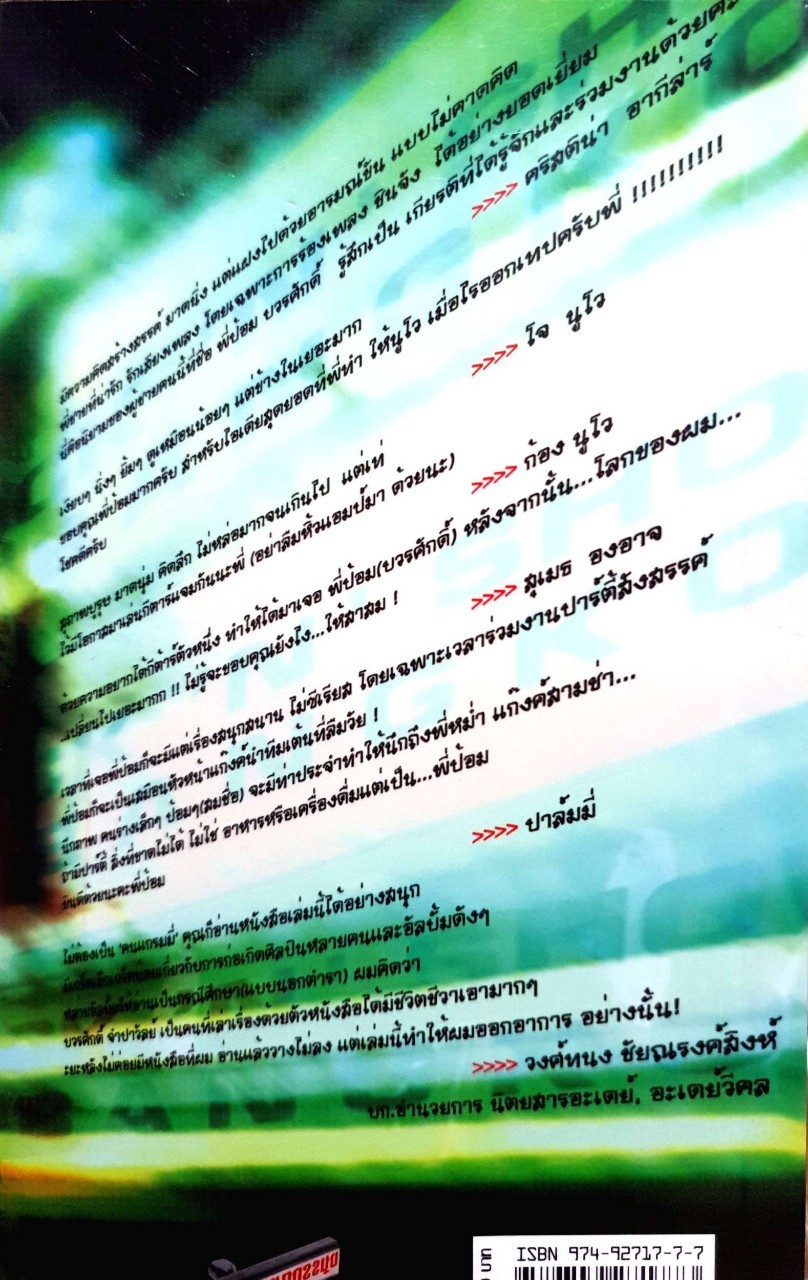 มีความคิดสร้างสรรค์ มาดนิ่ง แต่แฝงไปด้วยอารมณ์ขัน แบบไม่คาดคิด
พี่ชายที่น่ารัก รักเสียงเพลง โดยเฉพาะการร้องเพลง ชินจัง ได้อย่างยอดเยี่ยม
นี่คือนิยามของผู้ชายคนนี้ที่ชื่อ พี่ป้อม บวรศักดิ์ รู้สึกเป็น เกียรติที่ได้รู้จักและร่วมงานด้วยค่ะ
>>>> คริสติน่า อากีล่าร์
เงียบๆ นิ่งๆ ยิ้มๆ ดูเหมือนน้อยๆ แต่ข้างในเยอะมาก
ขอบคุณพี่ป้อมมากครับ สำหรับไอเดียสุดยอดที่พี่ทำ ให้นูโว เมื่อไรออกเทปครับพี่ !!!!!!!!!!
โชคดีครับ
>>>> โจ นูโว
สุภาพบุรุษ มาดนุ่ม คิดลึก ไม่หล่อมากจนเกินไป แต่เท่
ไว้มีโอกาสมาเล่นกีตาร์แจมกันนะพี่ (อย่าลืมหิ้วแอมป์มา ด้วยนะ)
>>>> ก้อง นูโว
ด้วยความอยากได้กีต้าร์ตัวหนึ่ง ทำให้ได้มาเจอ พี่ป้อม(บวรศักดิ์) หลังจากนั้น...โลกของผม...
..เปลี่ยนไปเยอะมากก !! ไม่รู้จะขอบคุณยังไง...ให้สาสม !
>>>> สุเมธ องอาจ
เวลาที่เจอพี่ป้อมก็จะมีแต่เรื่องสนุกสนาน ไม่ซีเรียส โดยเฉพาะเวลาร่วมงานปาร์ตี้สังสรรค์
พี่ป้อมก็จะเป็นเสมือนหัวหน้าแก๊งค์นำทีมเต้นที่ลืมวัย !
นึกภาพ คนร่างเล็กๆ ป้อมๆ(สมชื่อ) จะมีท่าประจำทำให้นึกถึงพี่หม่ำ แก๊งค์สามช่า...
ถ้ามีปาร์ตี้ สิ่งที่ขาดไม่ได้ ไม่ใช่ อาหารหรือเครื่องดื่มแต่เป็น...พี่ป้อม
ยินดีด้วยนะคะพี่ป้อม
>>>> ปาล์มมี่
ไม่ต้องเป็น 'คนแกรมมี่' คุณก็อ่านหนังสือเล่มนี้ได้อย่างสนุก
มีเกร็ดเล็กเกร็ดน้อยเกี่ยวกับการก่อเกิดศิลปินหลายคนและอัลบั้มดังๆ
หลายอัลบั้มให้อ่านเป็นกรณีศึกษา(แบบนอกตำรา) ผมคิดว่า
บวรศักดิ์ จำปาวัลย์ เป็นคนที่เล่าเรื่องด้วยตัวหนังสือได้มีชีวิตชีวาเอามากๆ
ระยะหลังไม่ค่อยมีหนังสือที่ผม อ่านแล้ววางไม่ลง แต่เล่มนี้ทำให้ผมออกอาการ อย่างนั้น!
>>>> วงศ์ทนง ชัยณรงค์สิงห์
บก.อำนวยการ นิตยสารอะเดย์, อะเดย์วีคลี
ISBN 974-92717-7-7